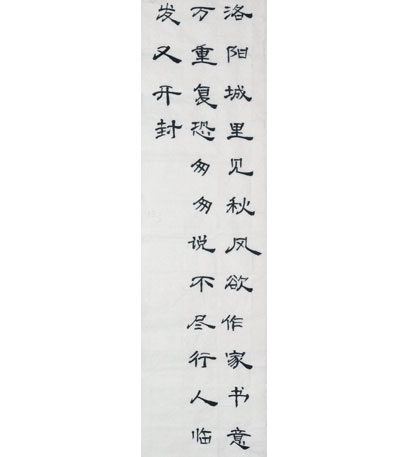 洛阳城里见秋风欲作家书意
万重复恐匆匆说不尽行人临
发又开封